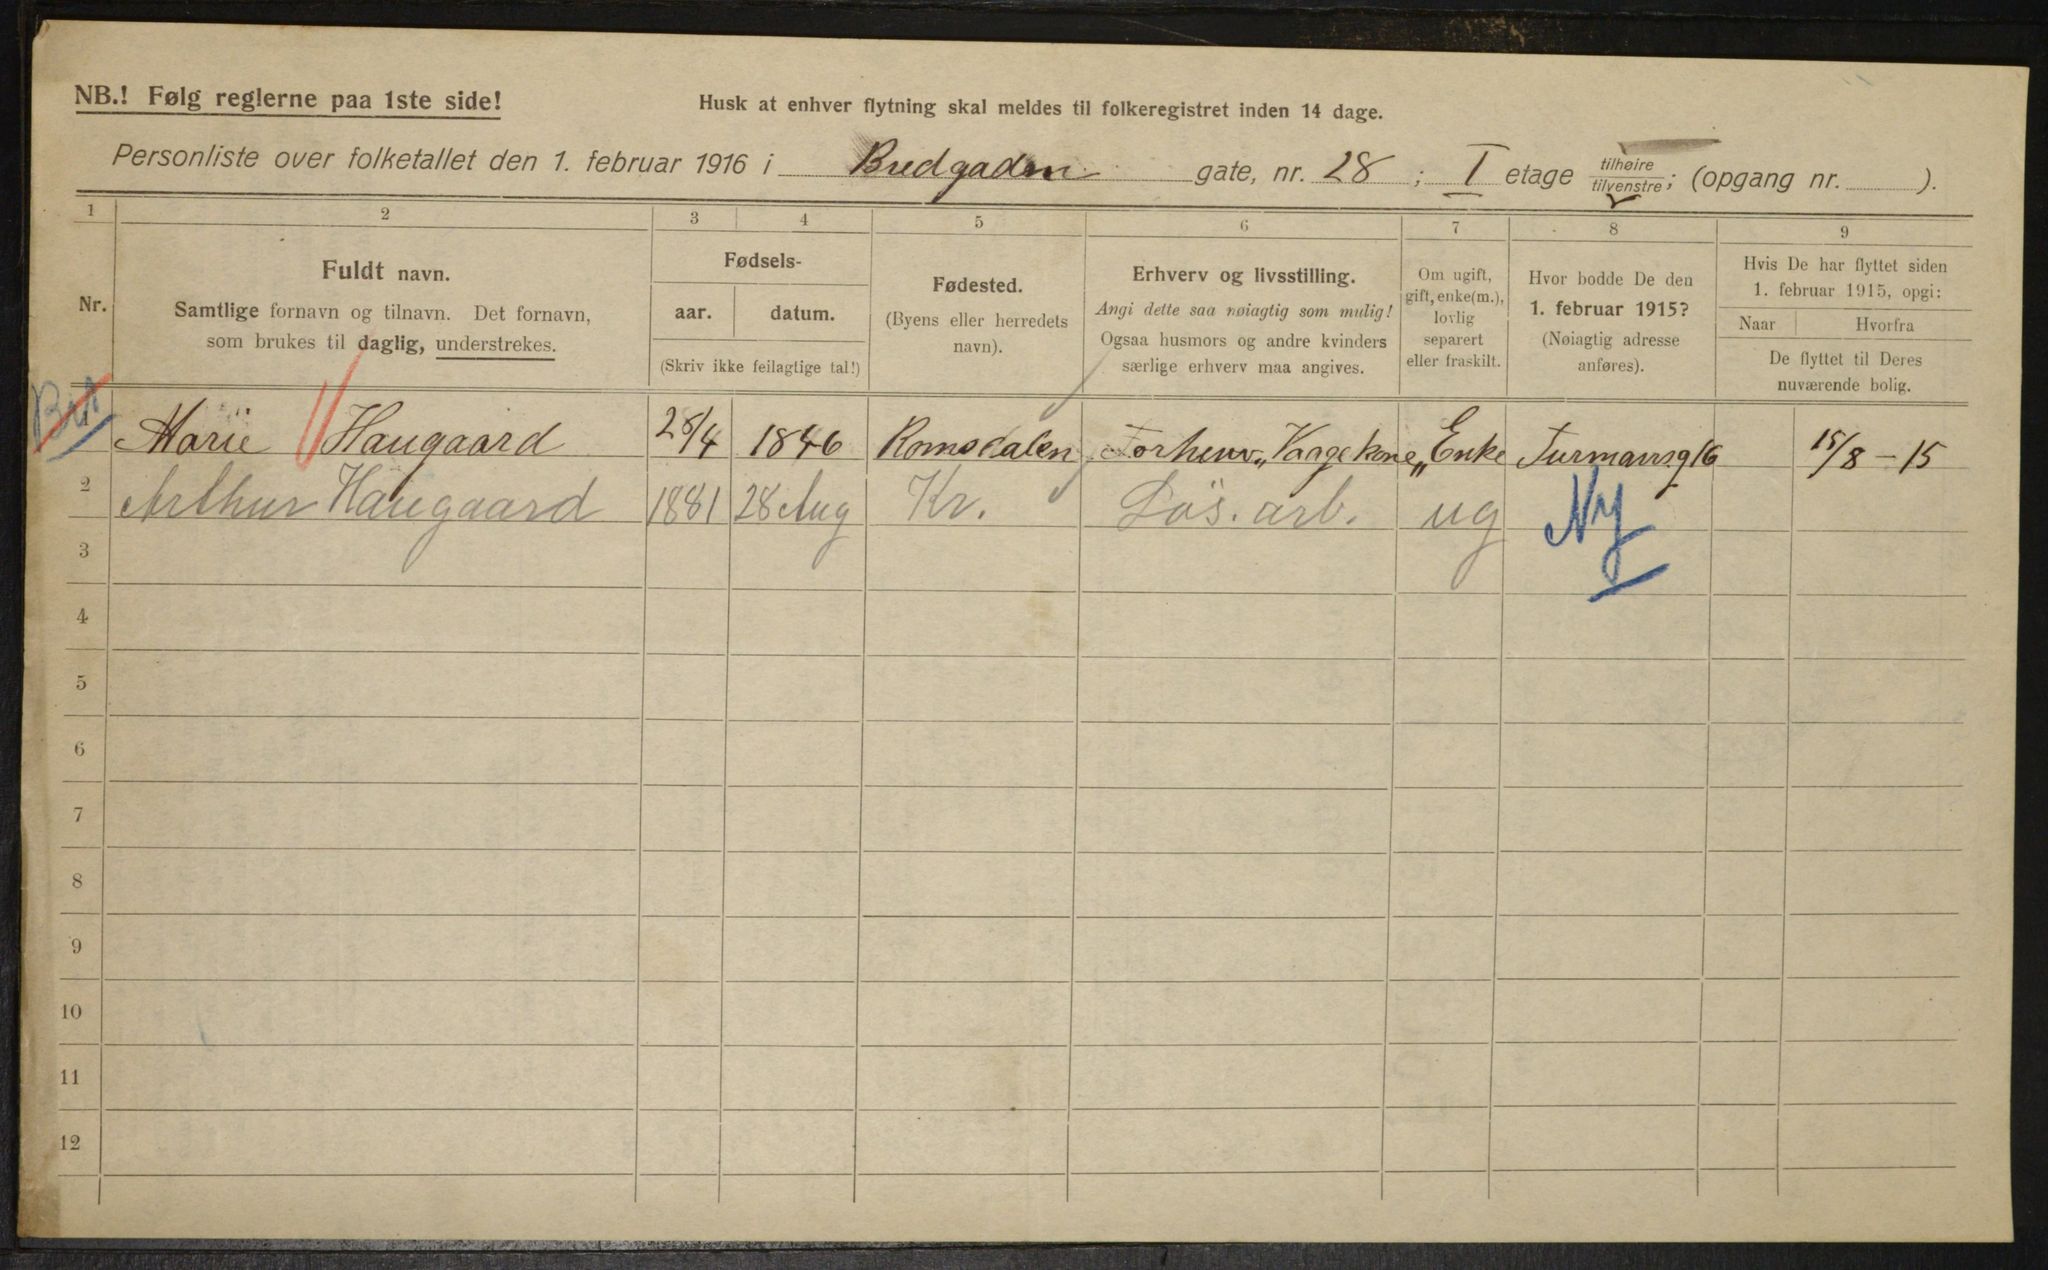 NB.! Følg reglerne paa 1ste side!
Husk at enhver flytning skal meldes til folkeregistret inden 14 dage.
Personliste over folketallet den 1. februar 1916 i Bredgaden gate, nr. 28 ; I etage tilhøire tilvenstre; (opgang nr. ).
1 2 3 4 5 6 7 8 9
Nr.
Fuldt navn.
Samtlige fornavn og tilnavn. Det fornavn,
som brukes til daglig, understrekes.
Fødsels-
aar. datum.
(Skriv ikke feilagtige tal!)
Fødested.
(Byens eller herredets
navn).
Erhverv og livsstilling.
Angi dette saa nøiagtig som mulig!
Ogsaa husmors og andre kvinders
særlige erhverv maa angives.
Om ugift,
gift, enke(m.),
lovlig
separert
eller fraskilt.
Hvor bodde De den
1. februar 1915?
(Nøiagtig adresse
anføres).
Hvis De har flyttet siden
1. februar 1915, opgi:
Naar Hvorfra
De flyttet til Deres
nuværende bolig.
Marie Haugaard 28/4 1846 Romsdalen Forhenv. Kogekone Enke 15/8 - 15
2 Arthur Haugaard 1881 28 Aug Kr. Løs. arb. ug Ny
3
4
5
6
7
8
9
10
11
12